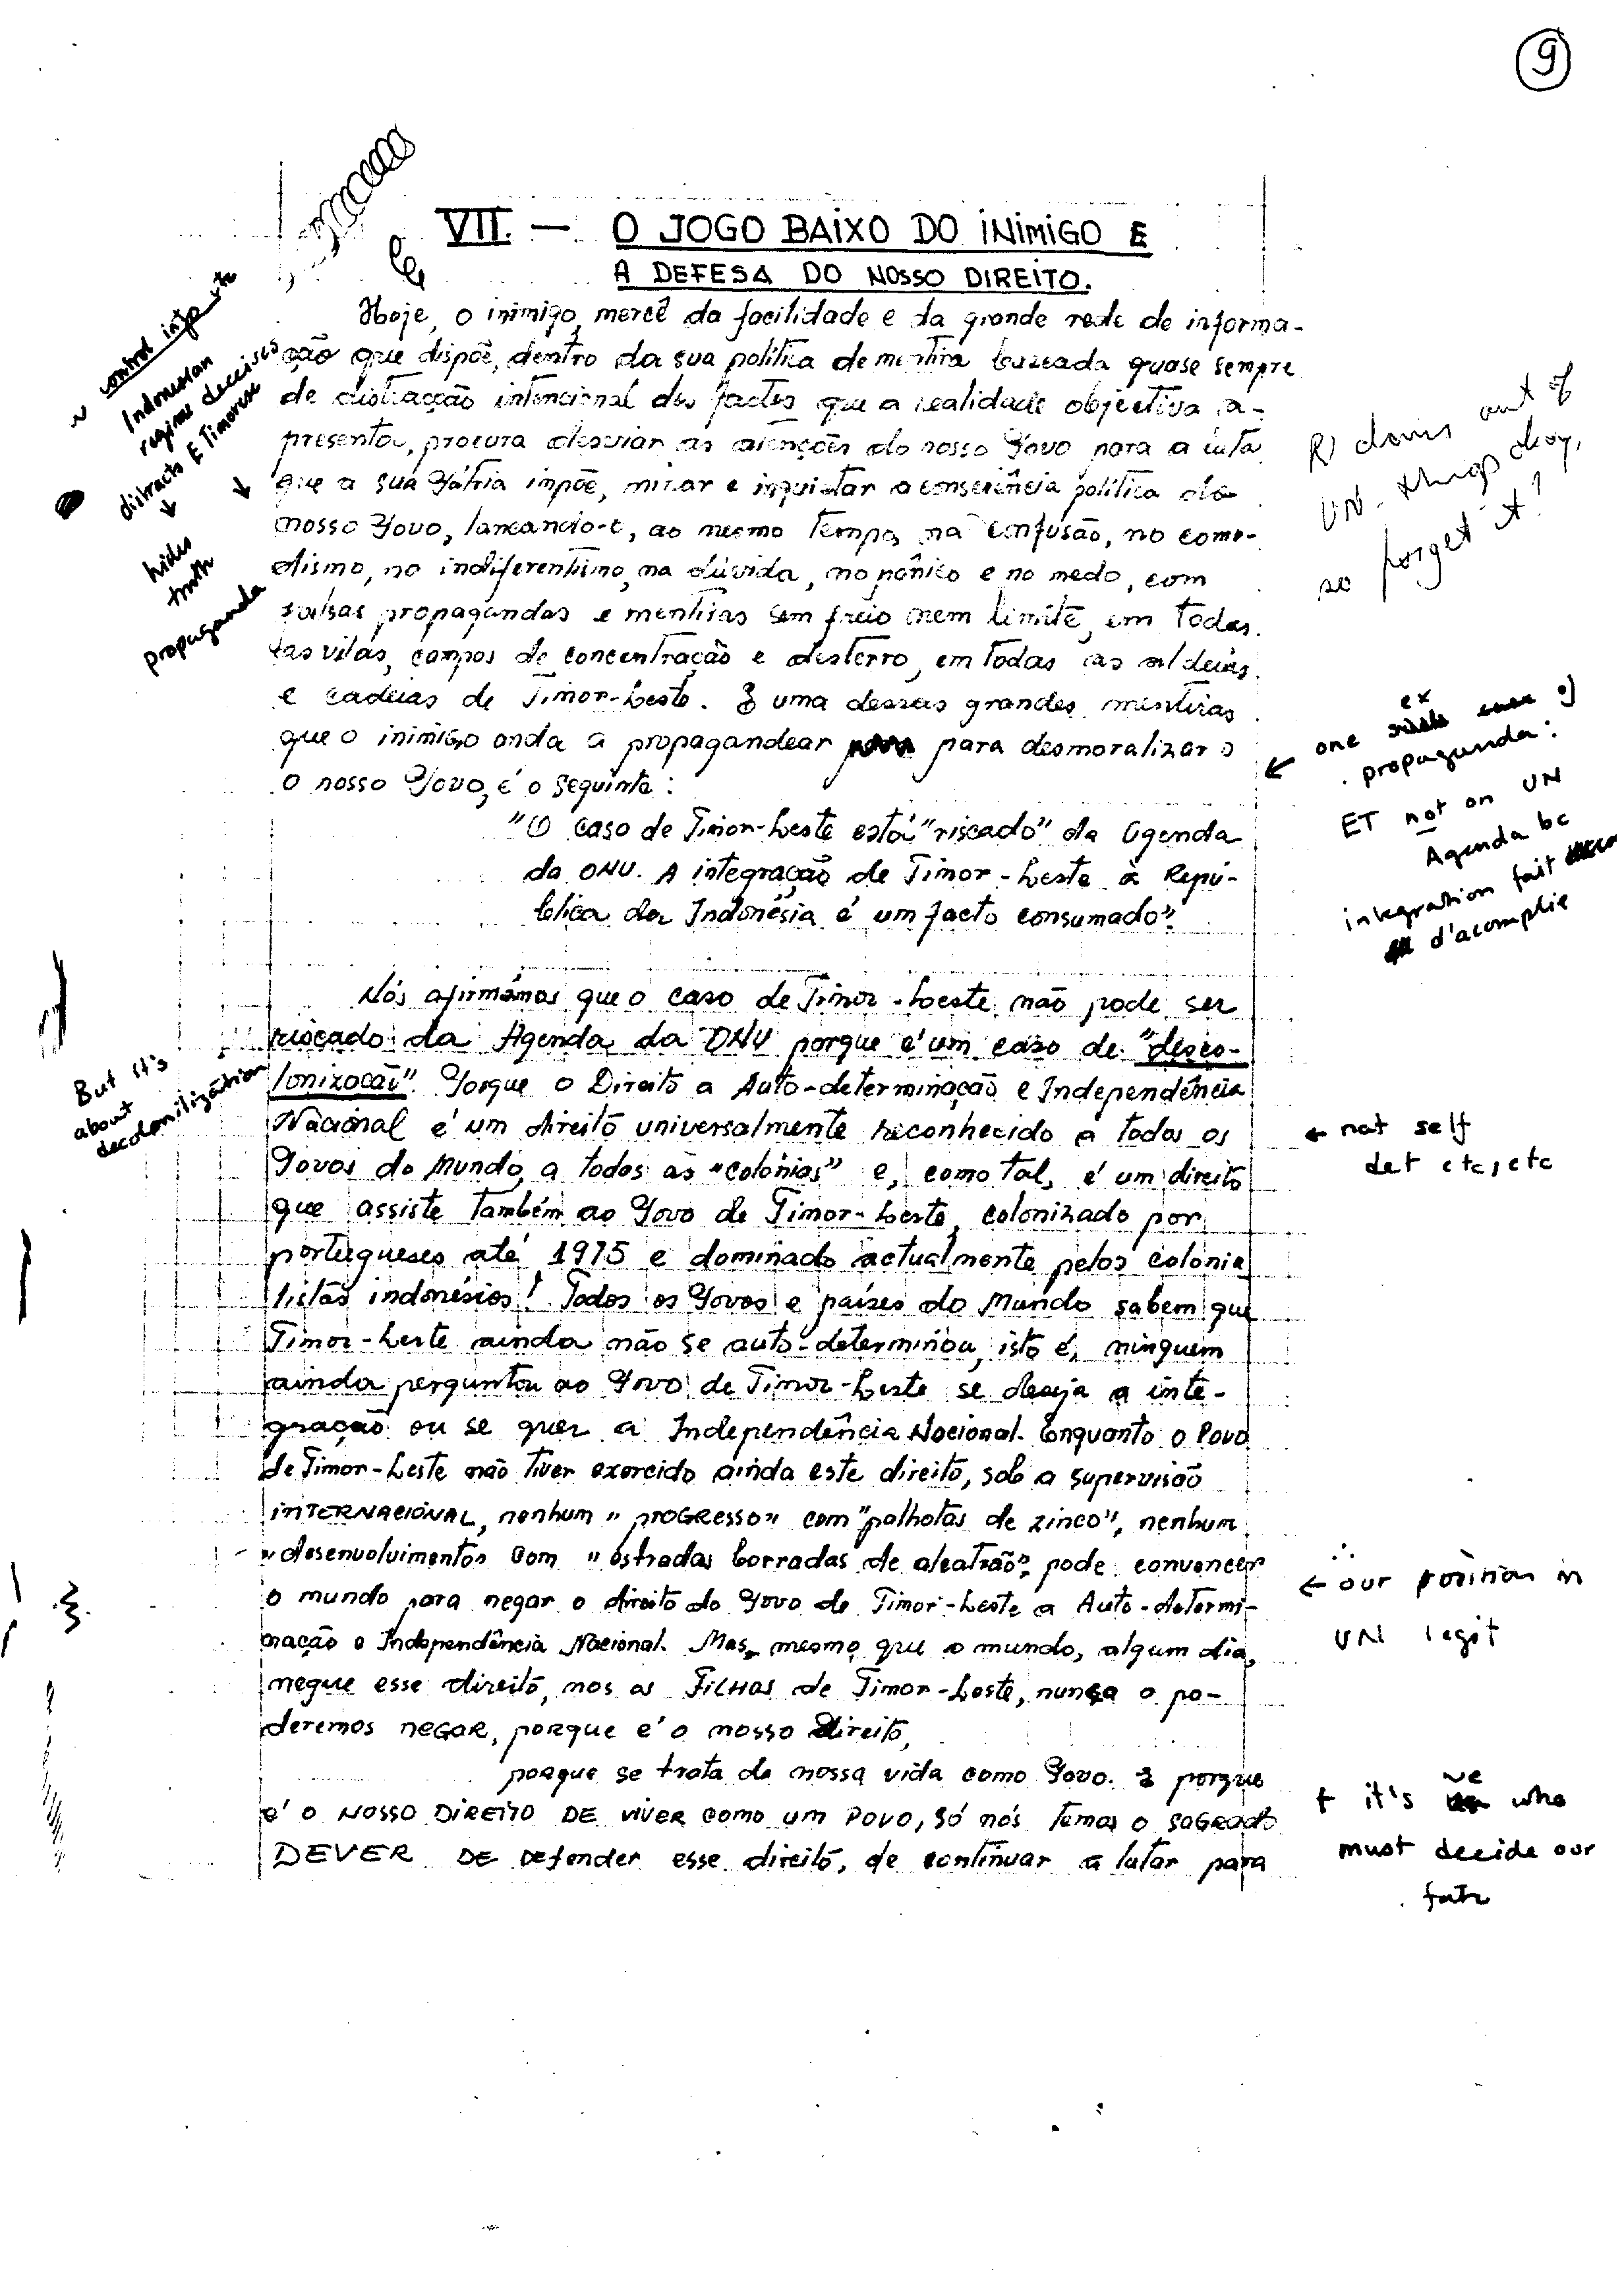 9
VII. — O JOGO BAIXO DO INIMIGO E
A DEFESA DO NOSSO DIREITO.
Hoje, o inimigo, mercê da facilidade e da grande rede de informa-
ção que dispõe, dentro da sua política de mentira quase sempre
de distracção intencional dos factos que a realidade objectiva a-
presenta, procura desviar as atenções do nosso Povo para a luta
que a sua Pátria impõe, minar e inquietar a consciência política do
nosso Povo, lançando-o, ao mesmo tempo, na confusão, no como-
dismo, no indiferentismo, na dúvida, no pânico e no medo, com
falsas propagandas e mentiras sem freio nem limite, em todas
as vilas, campos de concentração e desterro, em todas as aldeias
e cadeias de Timor-Leste. E uma dessas grandes mentiras
que o inimigo anda a propagandear para desmoralizar o
o nosso Povo, é o seguinte:
"O caso de Timor-Leste está "riscado" da Agenda
da ONU. A integração de Timor-Leste à Repú-
blica da Indonésia é um facto consumado".
Nós afirmamos que o caso de Timor-Leste não pode ser
riscado da Agenda da ONU porque é um caso de "desco-
lonização". Porque o Direito a Auto-determinação e Independência
Nacional é um direito universalmente reconhecido a todos os
Povos do Mundo, a todas as "colónias" e, como tal, é um direito
que assiste também ao Povo de Timor-Leste, colonizado por
portugueses até 1975 e dominado actualmente pelos colonia
listas indonésios! Todos os Povos e países do Mundo sabem que
Timor-Leste ainda não se auto-determinou, isto é, ninguém
ainda perguntou ao Povo de Timor-Leste se deseja a inte-
gração ou se quer a Independência Nacional. Enquanto o Povo
de Timor-Leste não tiver exercido ainda este direito, sob a supervisão
INTERNACIONAL, nenhum "PROGRESSO" com "palhotas de zinco", nenhum
"desenvolvimento" com "estradas borradas de alcatrão", pode convencer
o mundo para negar o direito do Povo de Timor-Leste a Auto-determi-
nação e Independência Nacional. Mas, mesmo que o mundo, algum dia,
negue esse direito, nos os FILHOS de Timor-Leste, nunca o po-
deremos NEGAR, porque é o nosso Direito,
porque se trata da nossa vida como Povo. E porque
é o NOSSO DIREITO DE VIVER COMO UM POVO, só nós temos o SAGRADO
DEVER DE DEFENDER esse direito, de continuar a lutar para
control info
Indonesian
regime deceives
distracts E Timorese
hides
truth
propaganda
But it's
about
decolonilization
downs out of
UN. things okay,
so forget it!
one ex of
propaganda:
ET not on UN
Agenda bc
integration fait
d'acomplie
← nat self
det etc, etc
∴
← our position in
UN legit
+ it's we who
must decide our
fate